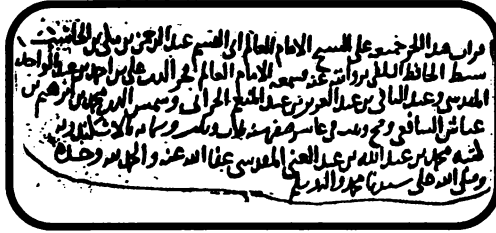 قرات هذا الجزء جميعه على الشيخ الامام العالم ابى القسم عبد الرحمن بن مكى بن الحاسب
سبط الحافظ السلفى بروايته عنه فسمعه الامام العالم فخر الدين على بن احمد بن عبد الواحد
المقدسى وعبد الباقى بن عبد العزيز بن عبد المنعم الحرانى وشمس الدين محمد بن ابرهيم بن
عياش الشافعى وصح وثبت فى عاشر صفر سنة ثلاث وثلثين وستمائة بالاسكندرية
كتبه محمد بن عبد الله بن عبد الغنى المقدسى عفا الله عنه والحمد لله وحده
وصلى الله على سيدنا محمد واله وسلم